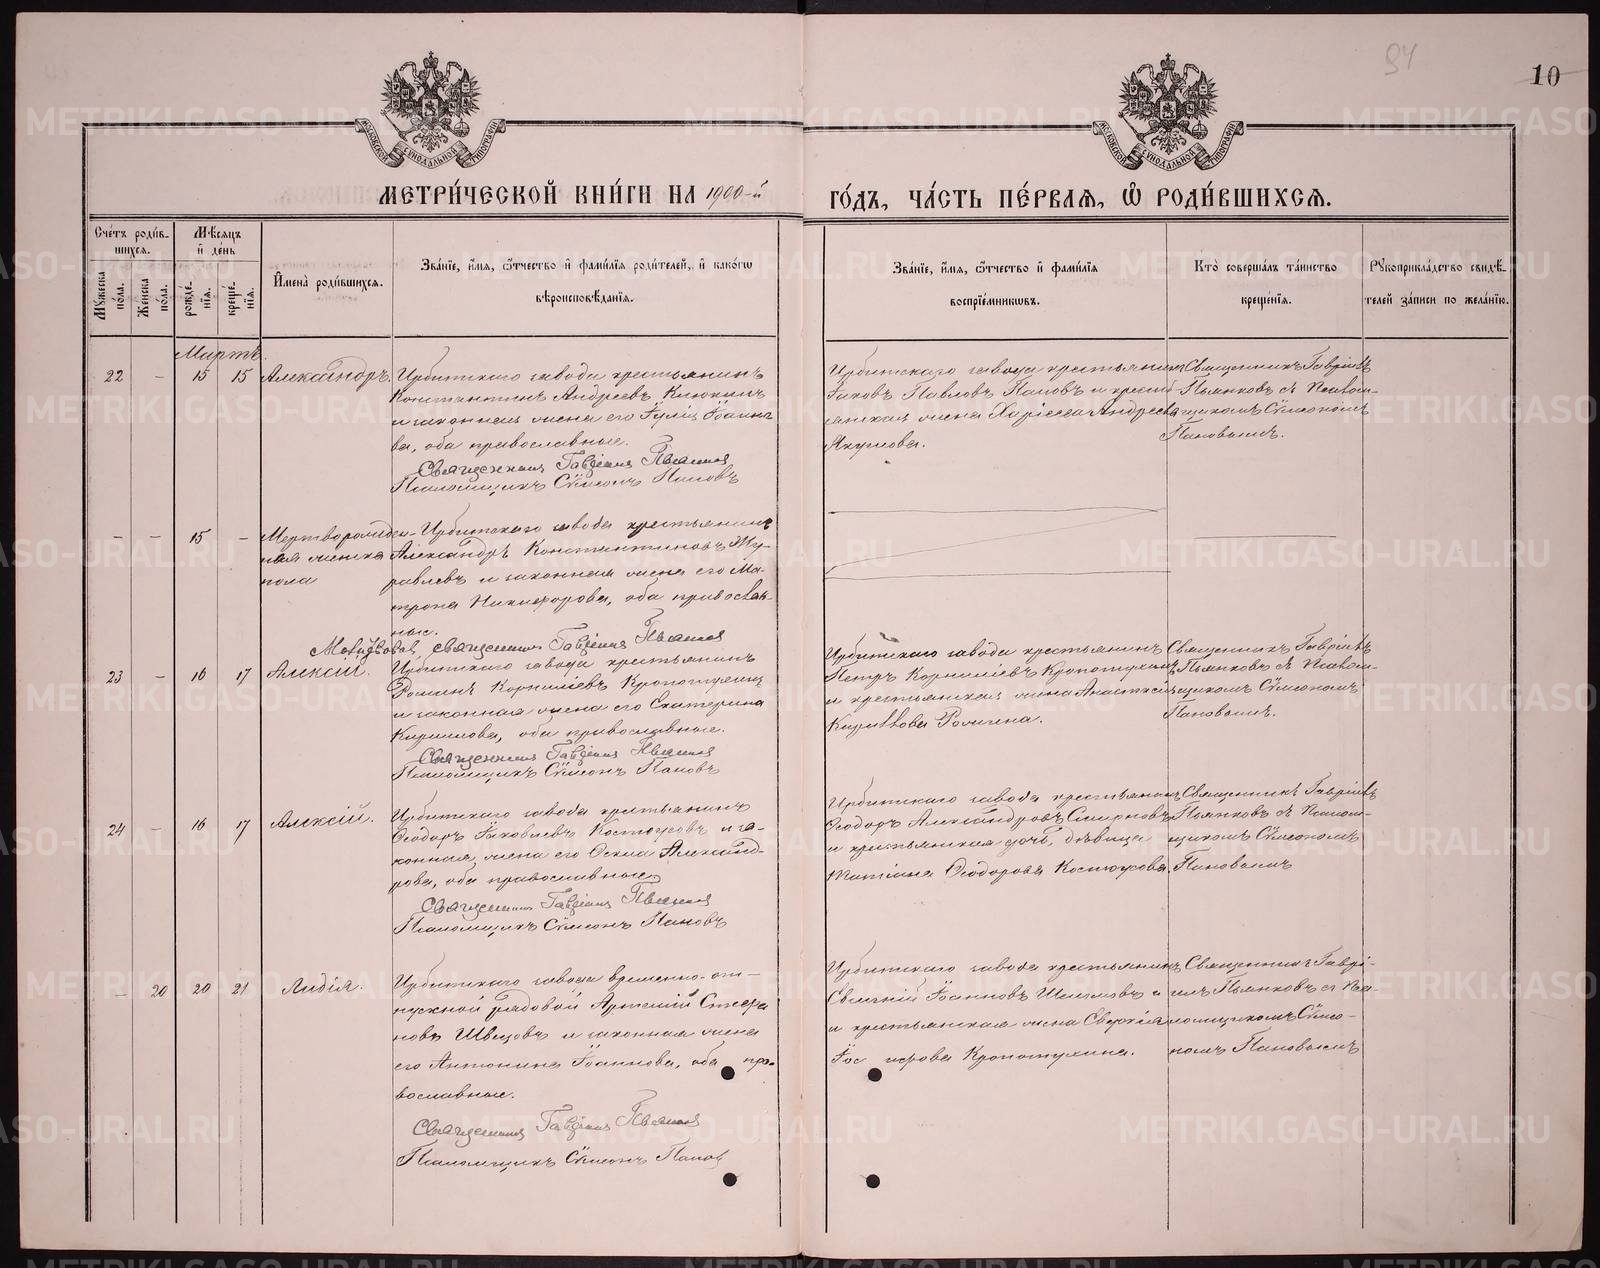 94
10
МОСКОВСКОЙ СѴНОДАЛЬНОЙ ТИПОГРАФІИ
МОСКОВСКОЙ СѴНОДАЛЬНОЙ ТИПОГРАФІИ
МЕТРИ́ЧЕСКОЙ КНИ́ГИ НА 1900-й ГО́ДЪ, ЧА́СТЬ ПЕ́РВАѦ, Ѿ РОДИ́ВШИХСѦ.
Сче́тъ роди́в-
шихсѧ.
Мꙋжеска по́ла.
Же́нска по́ла.
Мѣ́сѧцъ
и҆ де́нь
рожде́-
нїѧ.
креще́-
нїѧ.
И҆мена̀ роди́вшихсѧ.
Зва́нїе, и҆́мѧ, ѻ҆́тчество и҆ фами́лїѧ роди́телей, и҆ како́гѡ
вѣроисповѣ́данїѧ.
Зва́нїе, и҆́мѧ, ѻ҆́тчество и҆ фами́лїѧ
воспрїе́мникѡвъ.
Кто̀ соверша́лъ та́инство
креще́нїѧ.
Рꙋкоприкла́дство свидѣ́-
телей за́писи по жела́нїю.
Мартъ.
22 - 15 15 Александръ.
Ирбитскаго завода крестьянинъ
Константинъ Андреевъ
и законная жена его Іоанно
ва, оба православные.
Священникъ Гавріилъ Пьянков
Псаломщикъ Сѵмеонъ Пановъ
Ирбитскаго завода крестьянинъ
Іаковъ Павловъ Пановъ и крестьянская жена Андреева
Якушова.
Священникъ Гавріилъ
Пьянковъ съ Псалом-
щикомъ Сѵмеономъ
Пановымъ.
- - 15 - Мертворожден-
ная женска
пола
Ирбитскаго завода крестьянинъ
Александръ Константиновъ Жу-
равлевъ и законная жена его Ма-
трона Никифорова, оба православ-
ные.
Священникъ Гавріилъ Пьянков
23 - 16 17 Алексій.
Ирбитскаго завода крестьянинъ
Корниліевъ Кропотухинъ
и законная жена его Екатерина
Кириллова, оба православные.
Священникъ Гавріилъ Пьянков
Псаломщикъ Сѵмеонъ Пановъ
Ирбитскаго завода крестьянинъ
Петръ Корниліевъ Кропотухинъ
и крестьянская жена Анастасія
Кириллова
Священникъ Гавріилъ
Пьянковъ съ Псалом-
щикомъ Сѵмеономъ
Пановымъ.
24 - 16 17 Алексій.
Ирбитскаго завода крестьянинъ
Ѳеодоръ Іаковлевъ Костоусовъ и за-
конная жена его Александ-
рова, оба православные.
Священникъ Гавріилъ Пьянков
Псаломщикъ Сѵмеонъ Пановъ
Ирбитскаго завода крестьянинъ
Ѳеодоръ Александровъ Смирновъ
и крестьянская дочь, дѣвица
Татіана Ѳеодорова Костоусова.
Священникъ Гавріилъ
Пьянковъ съ Псалом-
щикомъ Сѵмеономъ
Пановымъ
- 20 20 21 Лидія.
Ирбитскаго завода временно-от-
пускной рядовой Артемій Стефа
новъ Швецовъ и законная жена
его Антонина Іоаннова, оба пра-
вославные.
Священникъ Гавріилъ Пьянков
Псаломщикъ Сѵмеонъ Панов
Ирбитскаго завода крестьянинъ
Евгеній Іоанновъ и
и крестьянская жена
Кропотухина.
Священникъ Гаврі-
илъ Пьянковъ съ Пса-
ломщикомъ Сѵмео-
номъ Пановымъ
METRIKI.GASO-URAL.RU